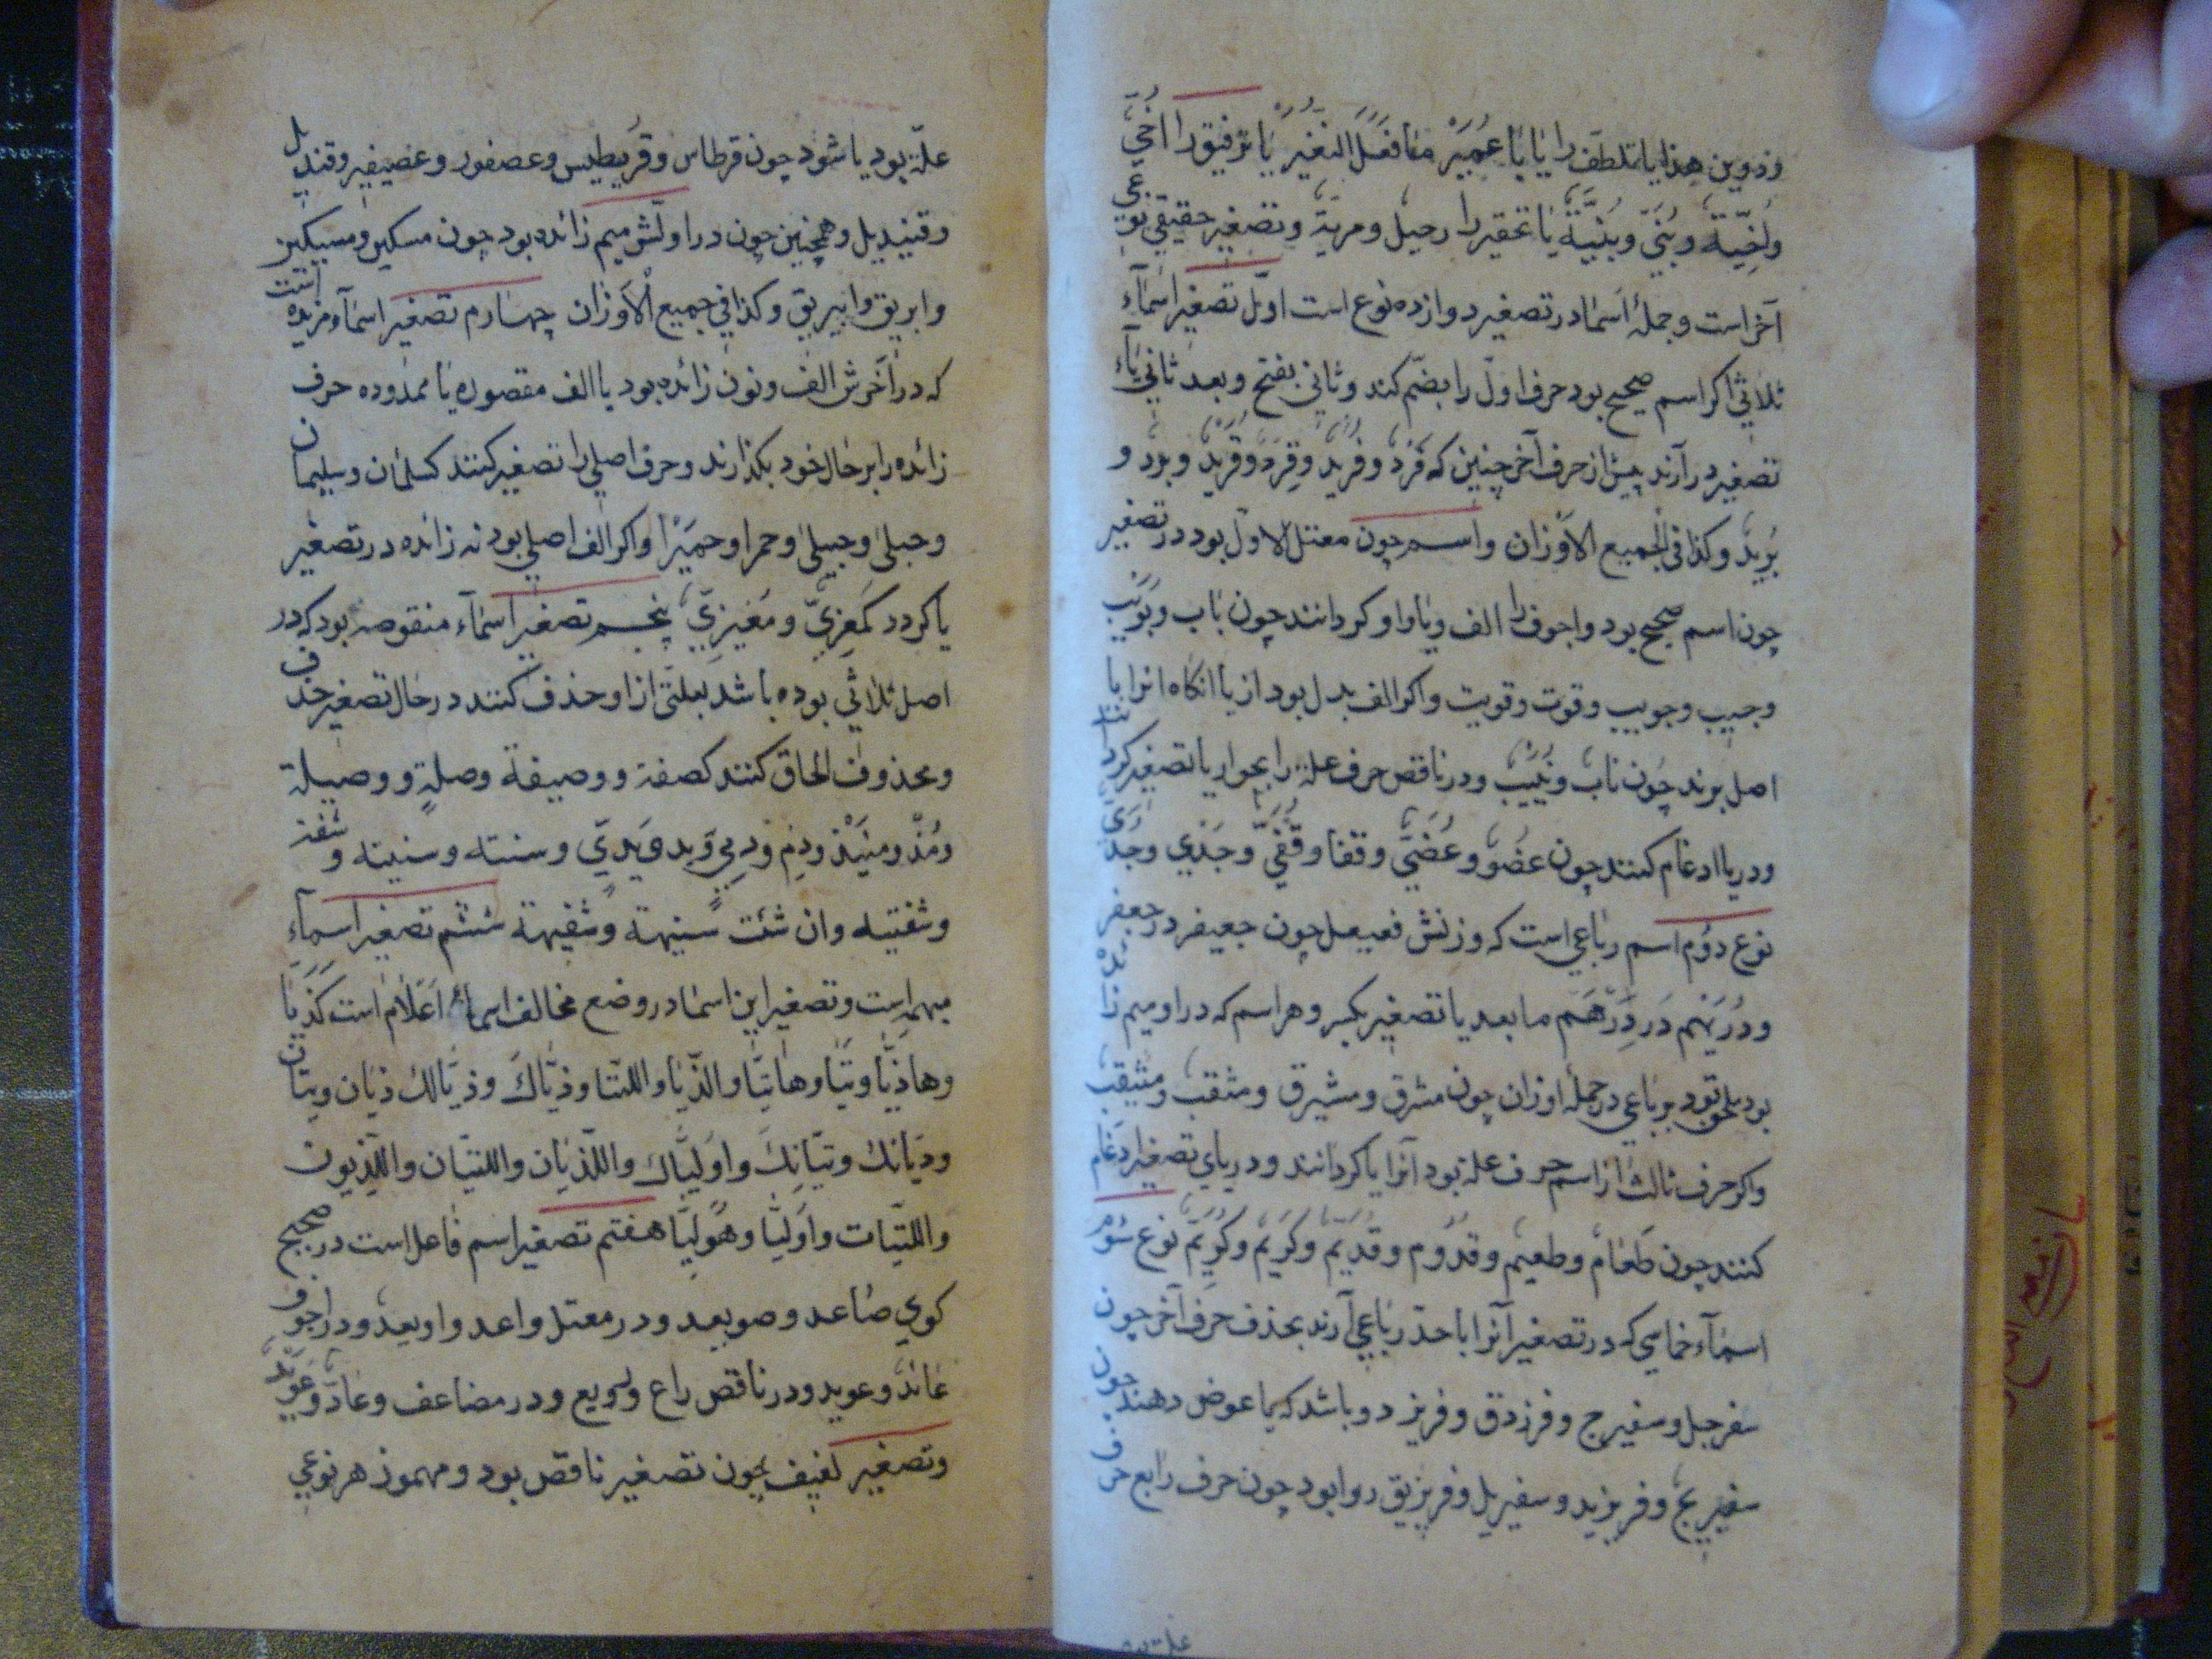 وذوین هذا یا تلطف را یا ابا عمیر ما فعل النغیر یا ترفیق را اخی
واخیة وبنی وبنیة یا تحقیر را رجیل ومریة وتصغیر حقیقی نوعی
آخر است وجملهٔ اسما در تصغیر دوازده نوع است اول تصغیر اسمآء
ثلاثی اکر اسم صحیح بود حرف اول را بضم کند وثانی بفتح وبعد ثانی یآء
تصغیر در آرند پیش از حرف آخر چنین که فرد وفرید وقرد وقرید وبرد و
برید وکذا فی الجمیع الاوزان واسم چون معتل الاول بود در تصغیر
چون اسم صحیح بود واجوف را الف ویا واو کردانند چون باب وبویب
وجیب وجویب وقوت وقویت واکر الف بدل بود از یا انکاه انرا با
اصل برند چون ناب ونییب ودر ناقص حرف علة را بجوار یا تصغیر کردانند
ودر یا ادغام کنند چون عضو وعضی وقفا وقفی وجدی وجدی
نوع دوم اسم رباعی است که وزنش فعیعل چون جعیفر در جعفر
ودریهم در درهم ما بعد یا تصغیر بکسر وهر اسم که در او میم زائده
بود ملحق بود برباعی در جملهٔ اوزان چون مشرق ومشیرق ومثقب ومثیقب
واکر حرف ثالث از اسم حرف علة بود آنرا یا کردانند ودر یای تصغیر ادغام
کنند چون طعام وطعیم وقدوم وقدیم وکریم وکریم نوع سوم
اسمآء خماسی که در تصغیر آنرا با حد رباعی آرند بحذف حرف آخر چون
سفرجل وسفیرج وفرزدق وفریزد وباشد که یا عوض دهند چون
سفیریج وفریزید وسفیریل وفریزیق روا بود چون حرف رابع حرف
علة بود
علة بود یا شود چون قرطاس وقریطیس وعصفور وعصیفیر وقندیل
وقنیدیل وهمچنین چون در اولش میم زائده بود چون مسکین ومسیکین
وابریق وابیریق وکذا فی جمیع الاوزان چهارم تصغیر اسمآء مزیده است
که در آخرش الف ونون زائده بود یا الف مقصوره یا ممدوده حرف
زائده را بر حال خود بکذارند وحرف اصلی را تصغیر کنند کسلمان وسلیمان
وحبلی وحبیلی وحمرا وحمیرا واکر الف اصلی بود نه زائده در تصغیر
یا کردد کمعزی ومعیزی پنجم تصغیر اسمآء منقوصه بود که در
اصل ثلاثی بوده باشد بعلتی از او حذف کنند در حال تصغیر حذف
ومحذوف الحاق کنند کصفة ووصیفة وصلة ووصیلة
ومذ ومنیذ ودم ودمی وید ویدی وسنته وسنیته وشفة
وشفتیه وان شئت سنیهة وشفیهة ششم تصغیر اسمآء
مبهم است وتصغیر این اسما در وضع مخالف اسمآء اعلام است کذیا
وهاذیا وتیا وهاتیا والذیا واللتیا وذیاک وذیالک ذیان وتیان
وذیانک وتیانک واولیاک واللذیان واللتیان واللذیون
واللتیات واولیا وهولیا هفتم تصغیر اسم فاعل است در صحیح
کوی صاعد وصویعد ودر معتل واعد واویعد ودر اجوف
عائد وعوید ودر ناقص راع ورویع ودر مضاعف وعاد وعوید
وتصغیر لفیف چون تصغیر ناقص بود ومهموز هر نوعی